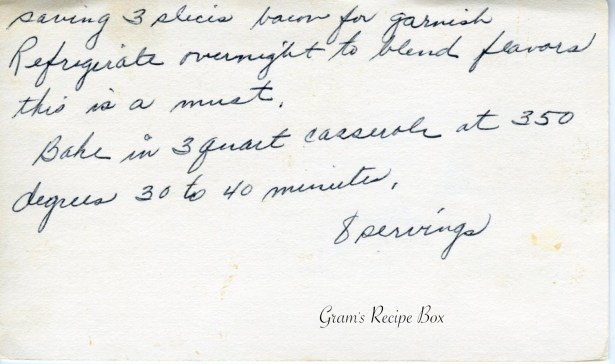 saving 3 slices bacon for garnish
Refrigirate overnight to blend flavors
this is a must.
Bake in 3 quart casserole at 350
degrees 30 to 40 minutes.
8 servings
Gram's Recipe Box